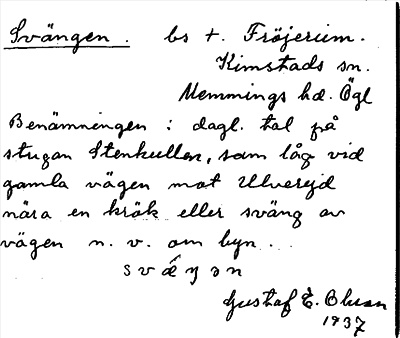 Svängen. bs t. Fröjerum.
Kimstads sn.
Memmings hd. Ögl
Benämningen i dagl. tal på
stugan Stenkullen, som låg vid
gamla vägen mot Ulveryd
nära en krök eller sväng av
vägen n. v. om byn...
svä́ŋən
Gustaf E. Olsson
1937